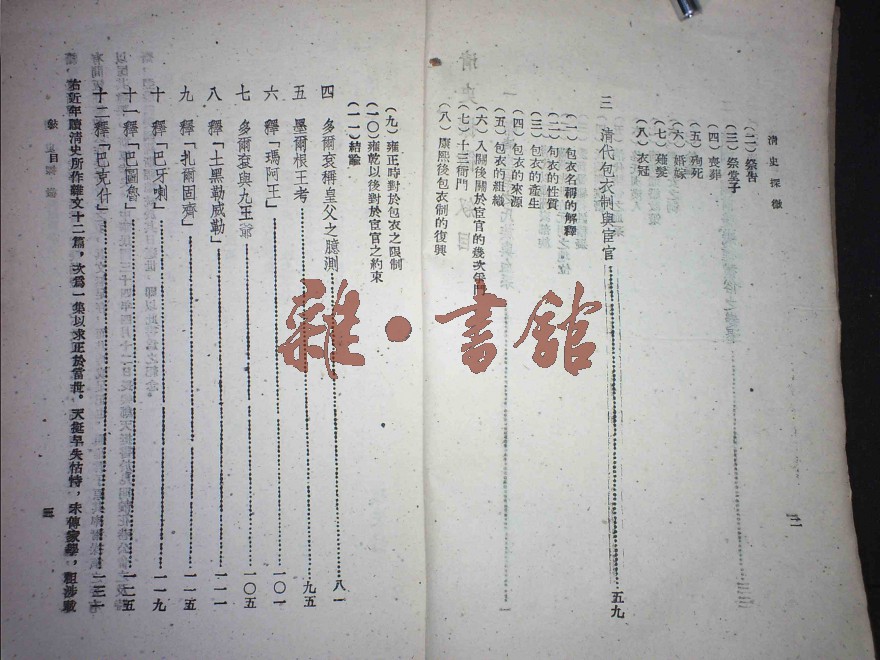 清史探微
二
(二)祭告
(三)祭堂子
(四)喪葬
(五)殉死
(六)婚嫁
(七)薙髮
(八)衣冠
三 清代包衣制與宦官 五九
(一)包衣名稱的解釋
(二)包衣的性質
(三)包衣的產生
(四)包衣的來源
(五)包衣的組織
(六)入關後關於宦官的幾次爭鬥
(七)十三衙門
(八)康熙後包衣制的復興
(九)雍正時對於包衣之限制
(一〇)雍乾以後對於宦官之約束
(一一)結論
四 多爾袞稱皇父之臆測 八一
五 墨爾根王考 九五
六 釋「瑪阿王」 一〇一
七 多爾袞與九王爺 一〇五
八 釋「土黑勒威勒」 一一一
九 釋「扎爾固齊」 一一五
十 釋「巴牙喇」 一一九
十一 釋「巴圖魯」 一二五
十二 釋「巴克什」 一三一
右近年讀清史所作雜文十二篇，次爲一集以求正於當世。天挺早失怙恃，未傳家學，粗涉載
目
三
雜·書館